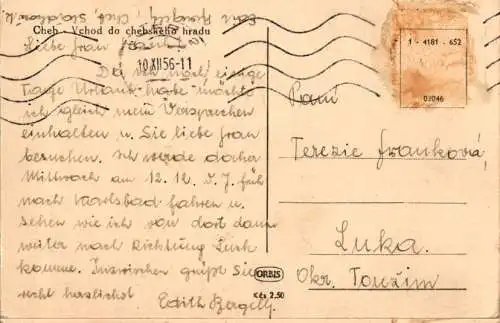 Cheb - Vchod do chebského hradu
Liebe Frau
10.XII.56-11
Da ich noch einige
Tage Urlaub habe möchte
ich gleich mein Versprechen
einhalten u. Sie liebe Frau
besuchen. Ich werde daher
Mittwoch am 12.12. d. J. früh
nach Karlsbad fahren u.
sehen wie ich von dort dann
weiter nach Richtung Luck
komme. Inzwischen grüßt Sie
recht herzlichst
Edith
1 - 4181 - 652
03046
Paní
Terezie Franková
Luka.
Okr. Toužim
ORBIS
Kčs 2,50